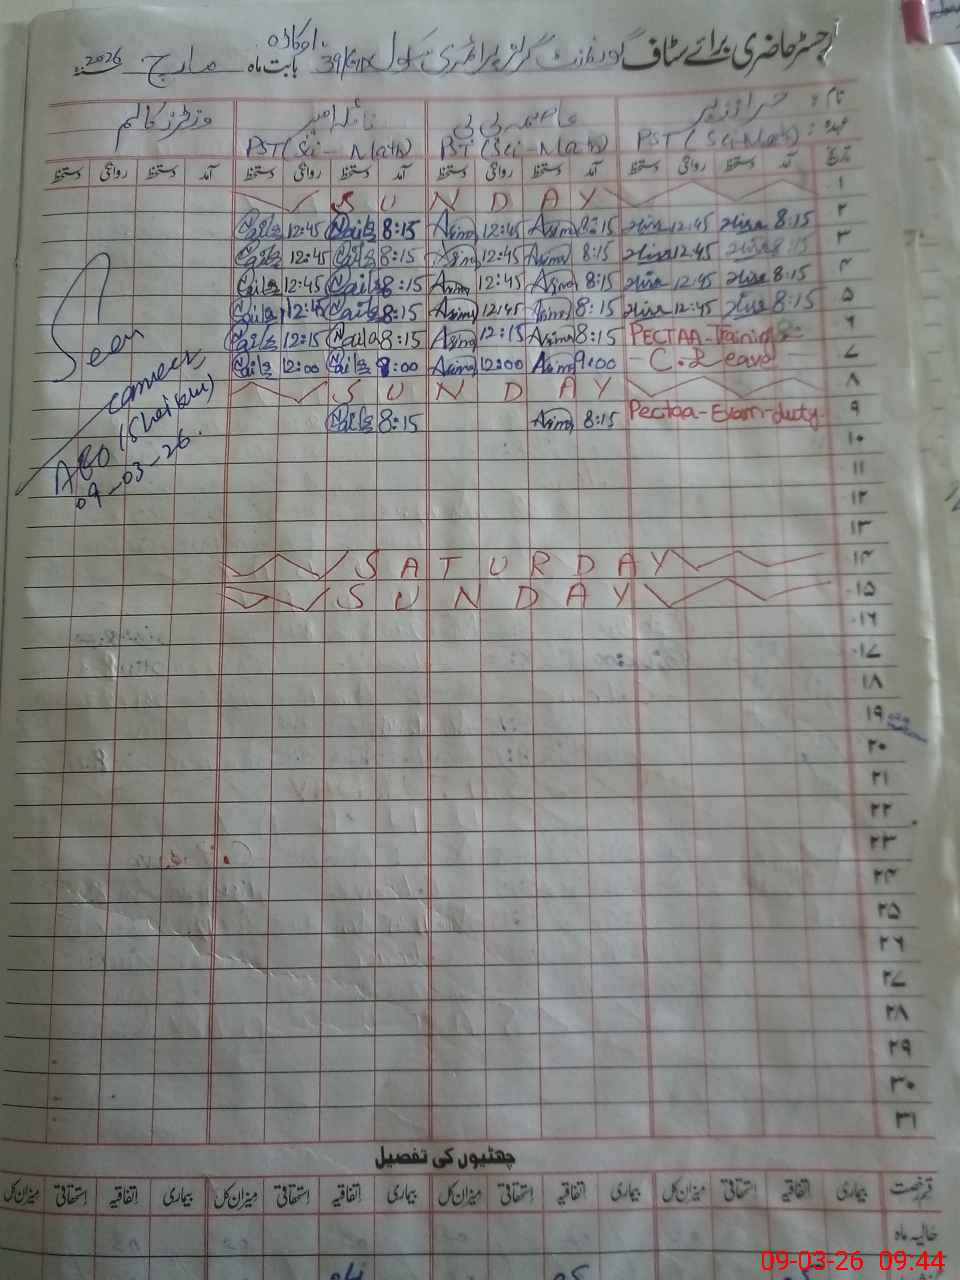 رجسٹر حاضری برائے سٹاف گورنمنٹ گرلز پرائمری سکول 39/ بابت ماہ مارچ 2026
اوکاڑہ
نام: عاصمہ بی بی نائلہ امیر وزٹرز کالم
عہدہ: PST (Sci-Math) PST (Sci-Math) PST (Sci-Math)
تاریخ آمد دستخط روانگی دستخط آمد دستخط روانگی دستخط آمد دستخط روانگی دستخط آمد دستخط روانگی دستخط
۱ SUNDAY
۲ 8:15 Hira 12:45 Hira 8:15 Asima 12:45 Asima 8:15 Naila 12:45 Naila
۳ 8:15 Hira 12:45 Hira 8:15 Asima 12:45 Asima 8:15 Naila 12:45 Naila
۴ 8:15 Hira 12:45 Hira 8:15 Asima 12:45 Asima 8:15 Naila 12:45 Naila
۵ 8:15 Hira 12:45 Hira 8:15 Asima 12:45 Asima 8:15 Naila 12:45 Naila
۶ PECTAA-Training 8:15 Asima 12:15 Asima 8:15 Naila 12:15 Naila
۷ C.Leave 9:00 Asima 12:00 Asima 8:00 Naila 12:00 Naila
۸ SUNDAY
۹ Pectaa-Exam-duty 8:15 Asima 8:15 Naila
Seen
AEO (Sheikhu)
09-03-26.
۱۰
۱۱
۱۲
۱۳
۱۴ SATURDAY
۱۵ SUNDAY
۱۶
۱۷
۱۸
۱۹
۲۰
۲۱
۲۲
۲۳
۲۴
۲۵
۲۶
۲۷
۲۸
۲۹
۳۰
۳۱
چھٹیوں کی تفصیل
قسم رخصت بیماری اتفاقیہ استحقاقی میزان کل بیماری اتفاقیہ استحقاقی میزان کل بیماری اتفاقیہ استحقاقی میزان کل بیماری اتفاقیہ استحقاقی میزان کل
حالیہ ماہ
09-03-26 09:44